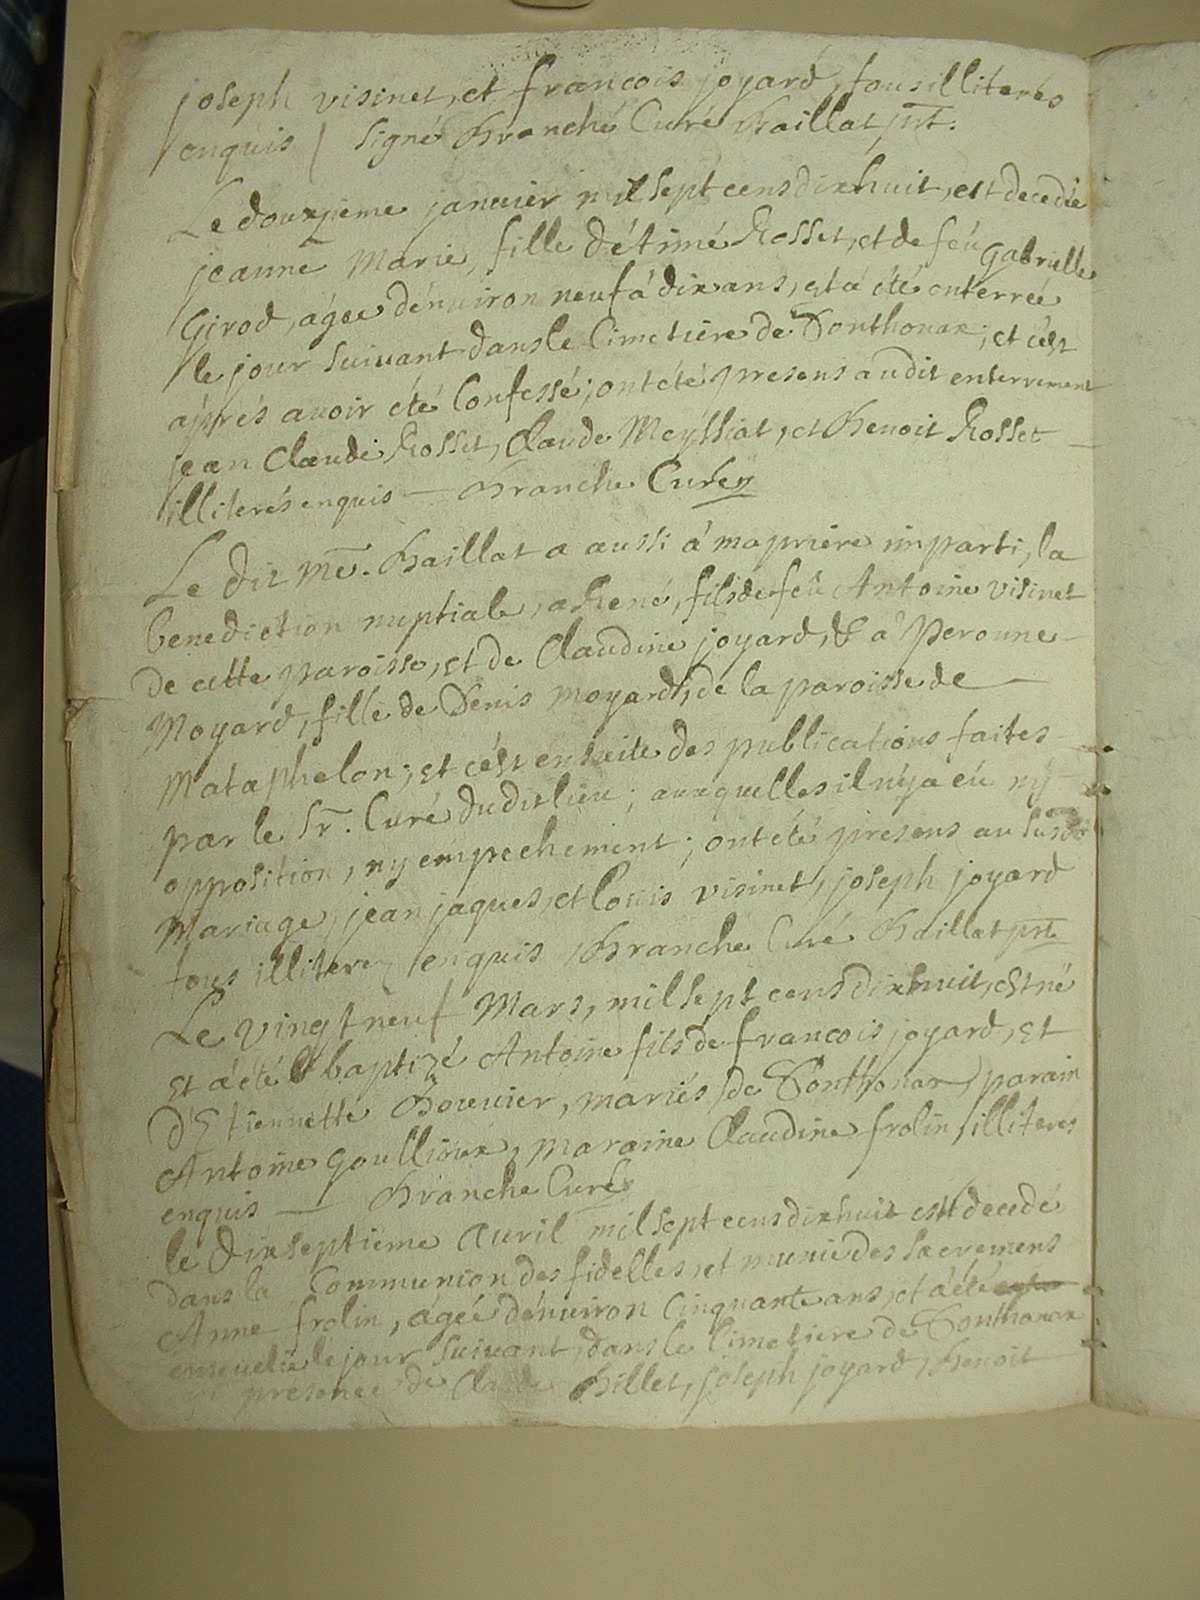 joseph visinet, et francois joyard, tous illiterés
enquis / signé Branche Curé Baillat prt.
Le douzième janvier mil sept cens dixhuit, est decedée
jeanne Marie, fille d'étiñé Rosset, et de feu Gabrielle
Girod, agée d'enuiron neuf á dix ans, et a été enterrée
le jour suiuant dans le Cimetiere de Sonthonax; et c'est
áprés avoir été Confessé; ont été presens audit enterrement
jean Claude Rosset, Claude Meylliat, et Benoit Rosset
illiterés enquis — Branche Curé
Le dit Me. Baillat a aussi á ma priere imparti, la
benediction nuptiale, a René, fils de feu Antoine visinet
de cette paroisse, et de Claudine joyard, & a Peronne
Moyard, fille de Denis moyard, de la paroisse de
Mataphelon; et c'est en suite des publications faites
par le Sr. Curé dudit lieu; auxquelles il n'ya eu ny
opposition, ny empechement; ont été presens au susdt
Mariage, jean jaques, et Louis visinet, joseph joyard
tous illiterez enquis Branche Curé Baillat prt
Le vingt neuf Mars, mil sept cens dixhuit, est né
et a été baptizé Antoine fils de francois joyard, et
d'Etiennette Bouuier, mariés de Sonthonax, parain
Antoine goullioux, maraine Claudine frolin, illiteres
enquis — Branche Curé
le dixseptieme Auril mil sept cens dixhuit est decedé
dans la Communion des fidelles, et munie des sacremens
Anne frolin, agée d'enuiron Cinquante ans, et a été
enseuelie le jour suiuant, dans le Cimetiere de Sonthonax
presence de Claude Billet, joseph joyard, Benoit